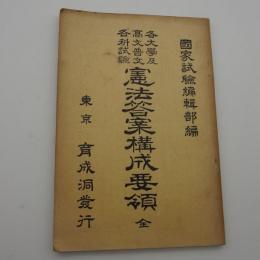 國家試驗編輯部編
各大學及
高文普文
各科試驗
憲法答案構成要領 全
東京 育成洞發行